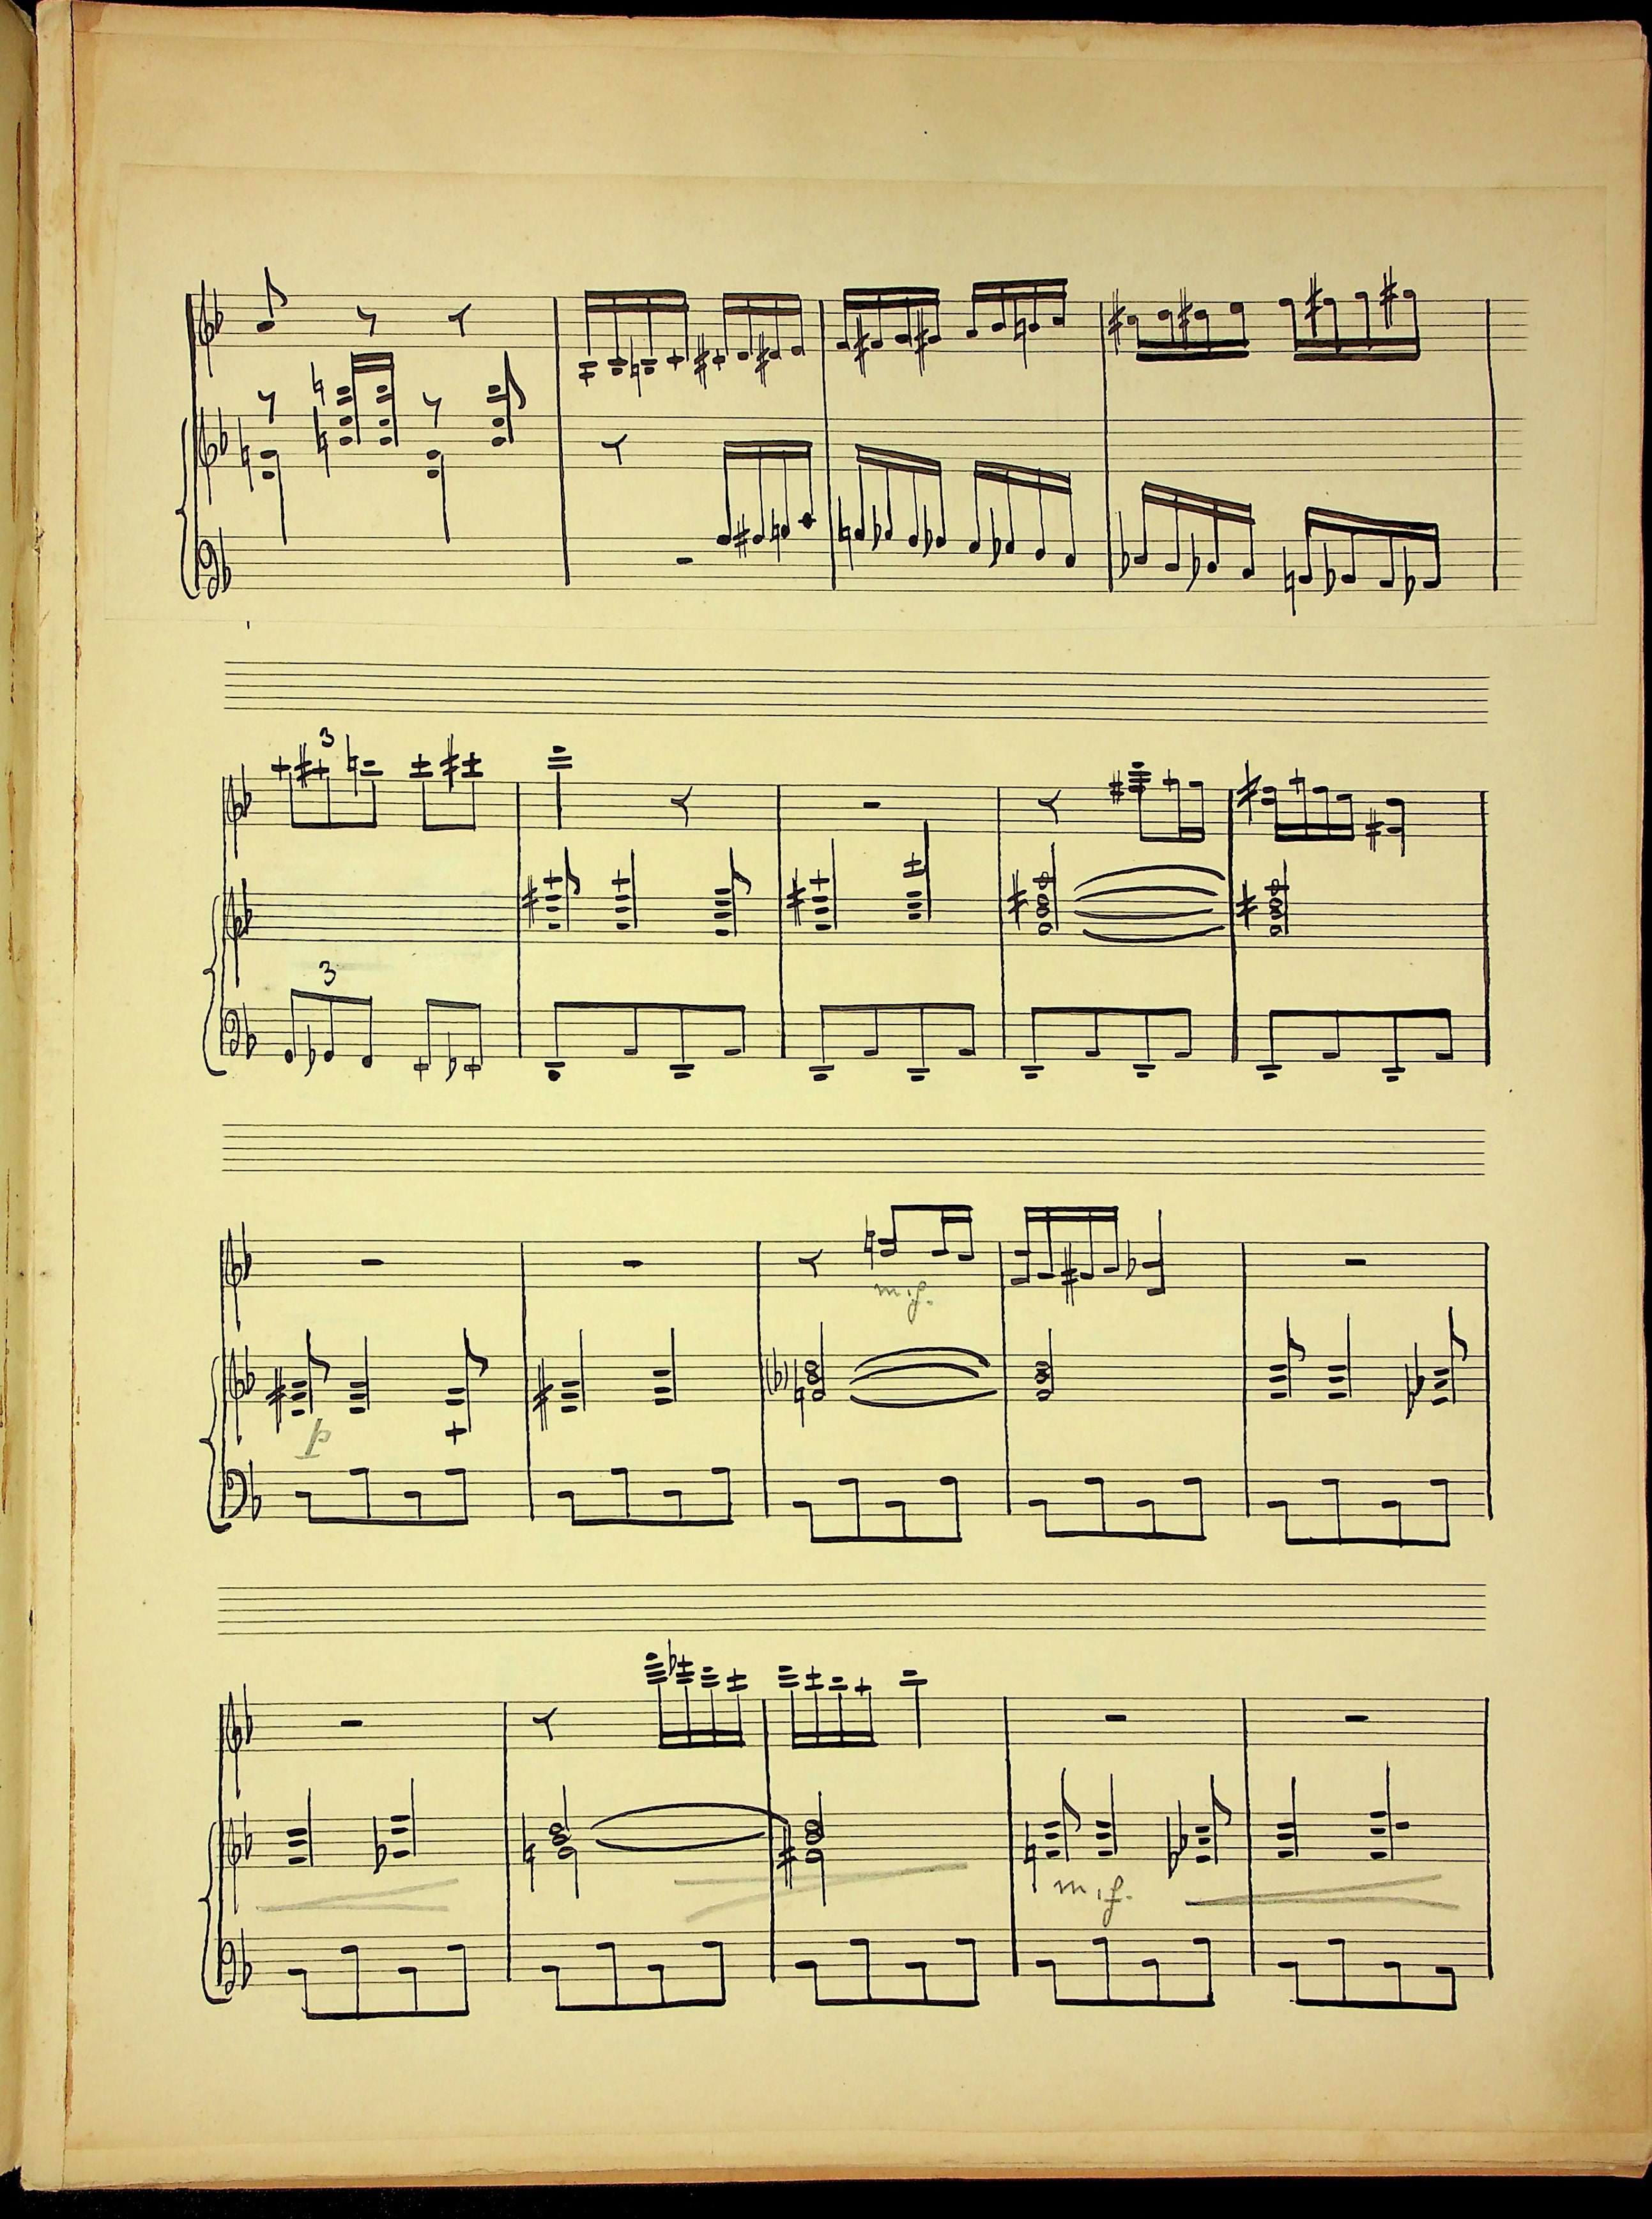 3
3
m.f.
p
m.f.